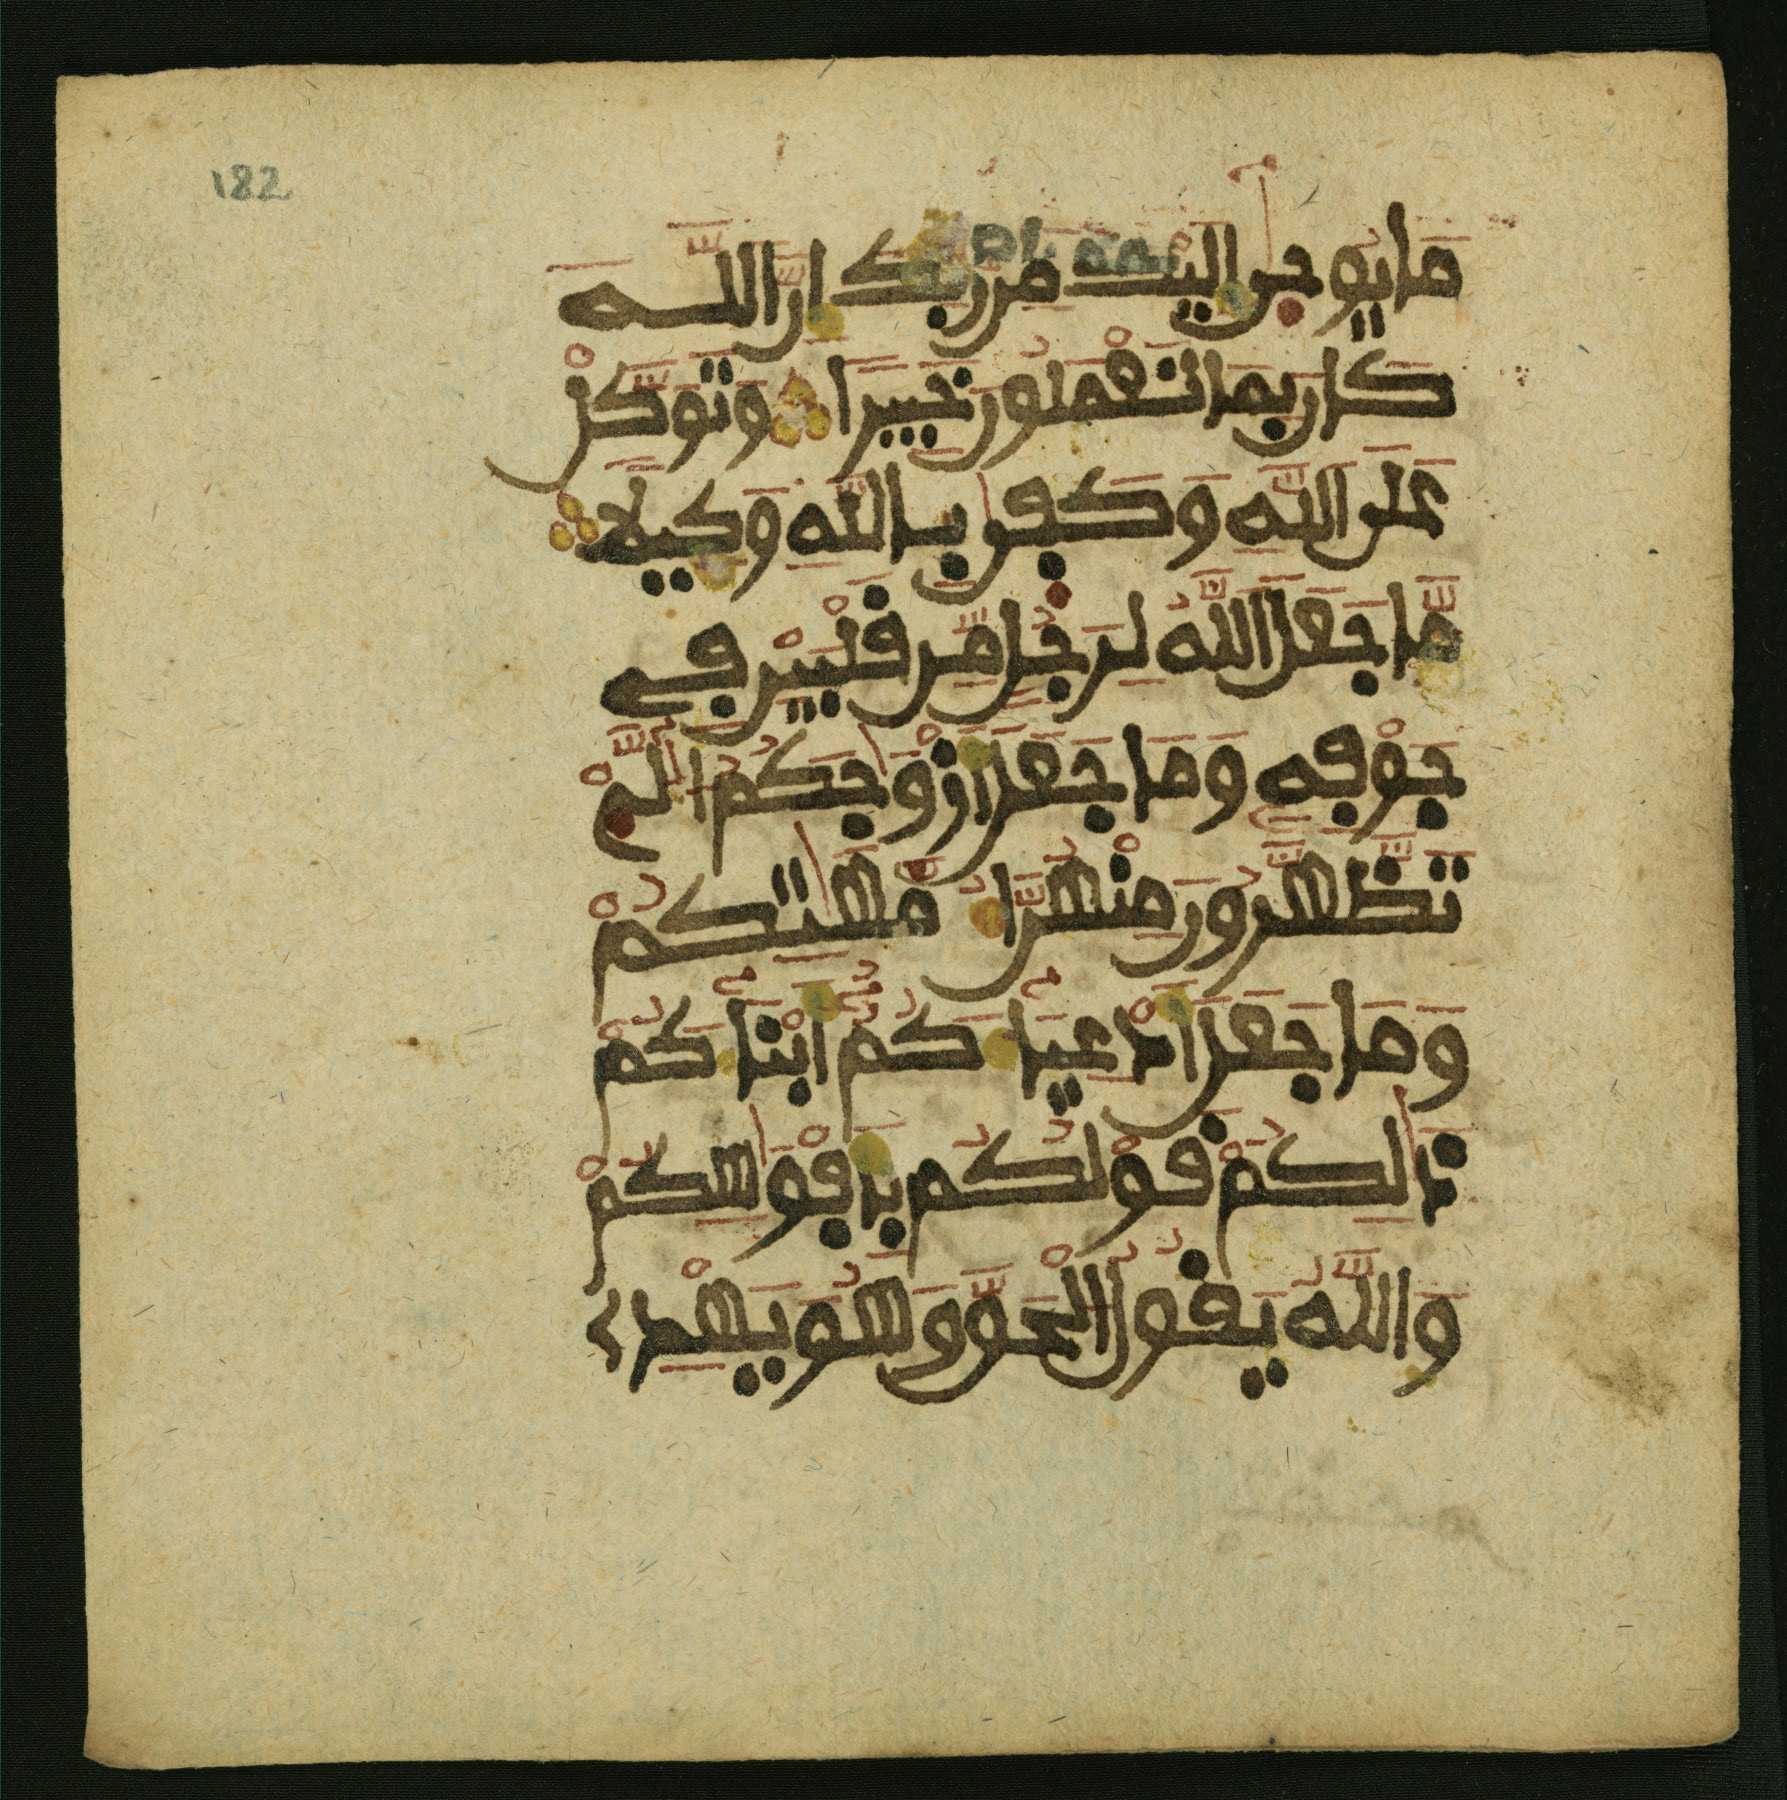 182
مَا يُوحٰى إِلَيْكَ مِن رَّبِّكَ إِنَّ اللَّه
كَانَ بِمَا تَعْمَلُونَ خَبِيرًا وَتَوَكَّلْ
عَلَى اللَّهِ وَكَفٰى بِاللَّهِ وَكِيلًا
مَّا جَعَلَ اللَّهُ لِرَجُلٍ مِّن قَلْبَيْنِ فِي
جَوْفِهِ وَمَا جَعَلَ أَزْوٰجَكُمُ الّٰـٓـِٔۡ
تَظَّهَّرُونَ مِنْهُنَّ أُمَّهٰتِكُمْ
وَمَا جَعَلَ أَدْعِيَآءَكُمْ أَبْنَآءَكُمْ
ذٰلِكُمْ قَوْلُكُم بِأَفْوٰهِكُمْ
وَاللَّهُ يَقُولُ الْحَقَّ وَهُوَ يَهْدِي